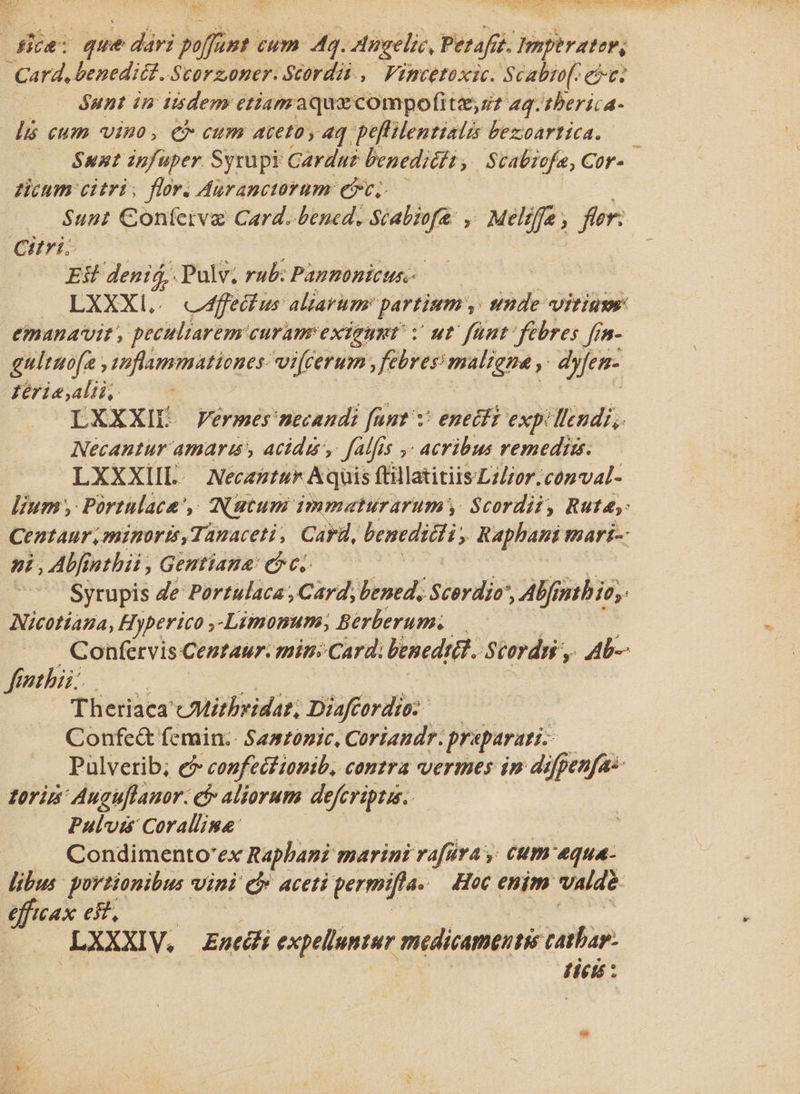 ticæ: quæ dari poſſunt cum Aq. Angelic, Petaſit. Imperator,
Card, benedict. Scorzoner. Scordii, Vincetoxic. Scabioſ. &c:
Sunt in iisdem etiam aquæ compoſitæ, ut aq. therica-
lis cum vino, & cum aceto, aq peſtilentialis bezoartica.
Sunt inſuper Syrupi Cardui benedicti, Scabioſæ, Cor-
ticum citri, flor. Auranctorum &c,
Sunt Conſervæ Card. bened. Scabioſæ, Meliſſæ, flor:
Citri.
Eſt deniq́; Pulv. rub: Pannonicus.
LXXXI. Affectus aliarum partium, unde vitium
emanavit, peculiarem curam exigunt: ut ſunt febres ſin-
gultuoſæ, inflammationes viſcerum, febres malignæ, dyſen-
teriæ, alii,
LXXXII. Vermes necandi ſunt: enecti expellendi,
Necantur amaris, acidis, ſalſis, acribus remediis.
LXXXIII. Necantur Aquis ſtillatitiis Lilior. conval-
lium, Portulacæ, Nucum immaturarum, Scordii, Rutæ,
Centaur, minoris, Tanaceti, Card, benedicti, Raphani mari-
ni, Abſinthii, Gentianæ &c.
Syrupis de Portulaca, Card, bened, Scordio, Abſinthio,
Nicotiana, Hyperico, Limonum, Berberum.
Conſervis Centaur. min: Card: benedict. Scordii, Ab-
ſinthii.
Theriaca Mithridat, Diaſcordio:
Confect ſemin. Santonic, Coriandr. præparati.
Pulverib; & confectionib, contra vermes in diſpenſa-
toriis Auguſtanor. & aliorum deſcriptis.
Pulvis Corallinæ
Condimento ex Raphani marini raſura, cum æqua-
libus portionibus vini & aceti permiſta. Hoc enim valdè
efficax eſt,
LXXXIV. Enecti expelluntur medicamentis cathar-
ticis: